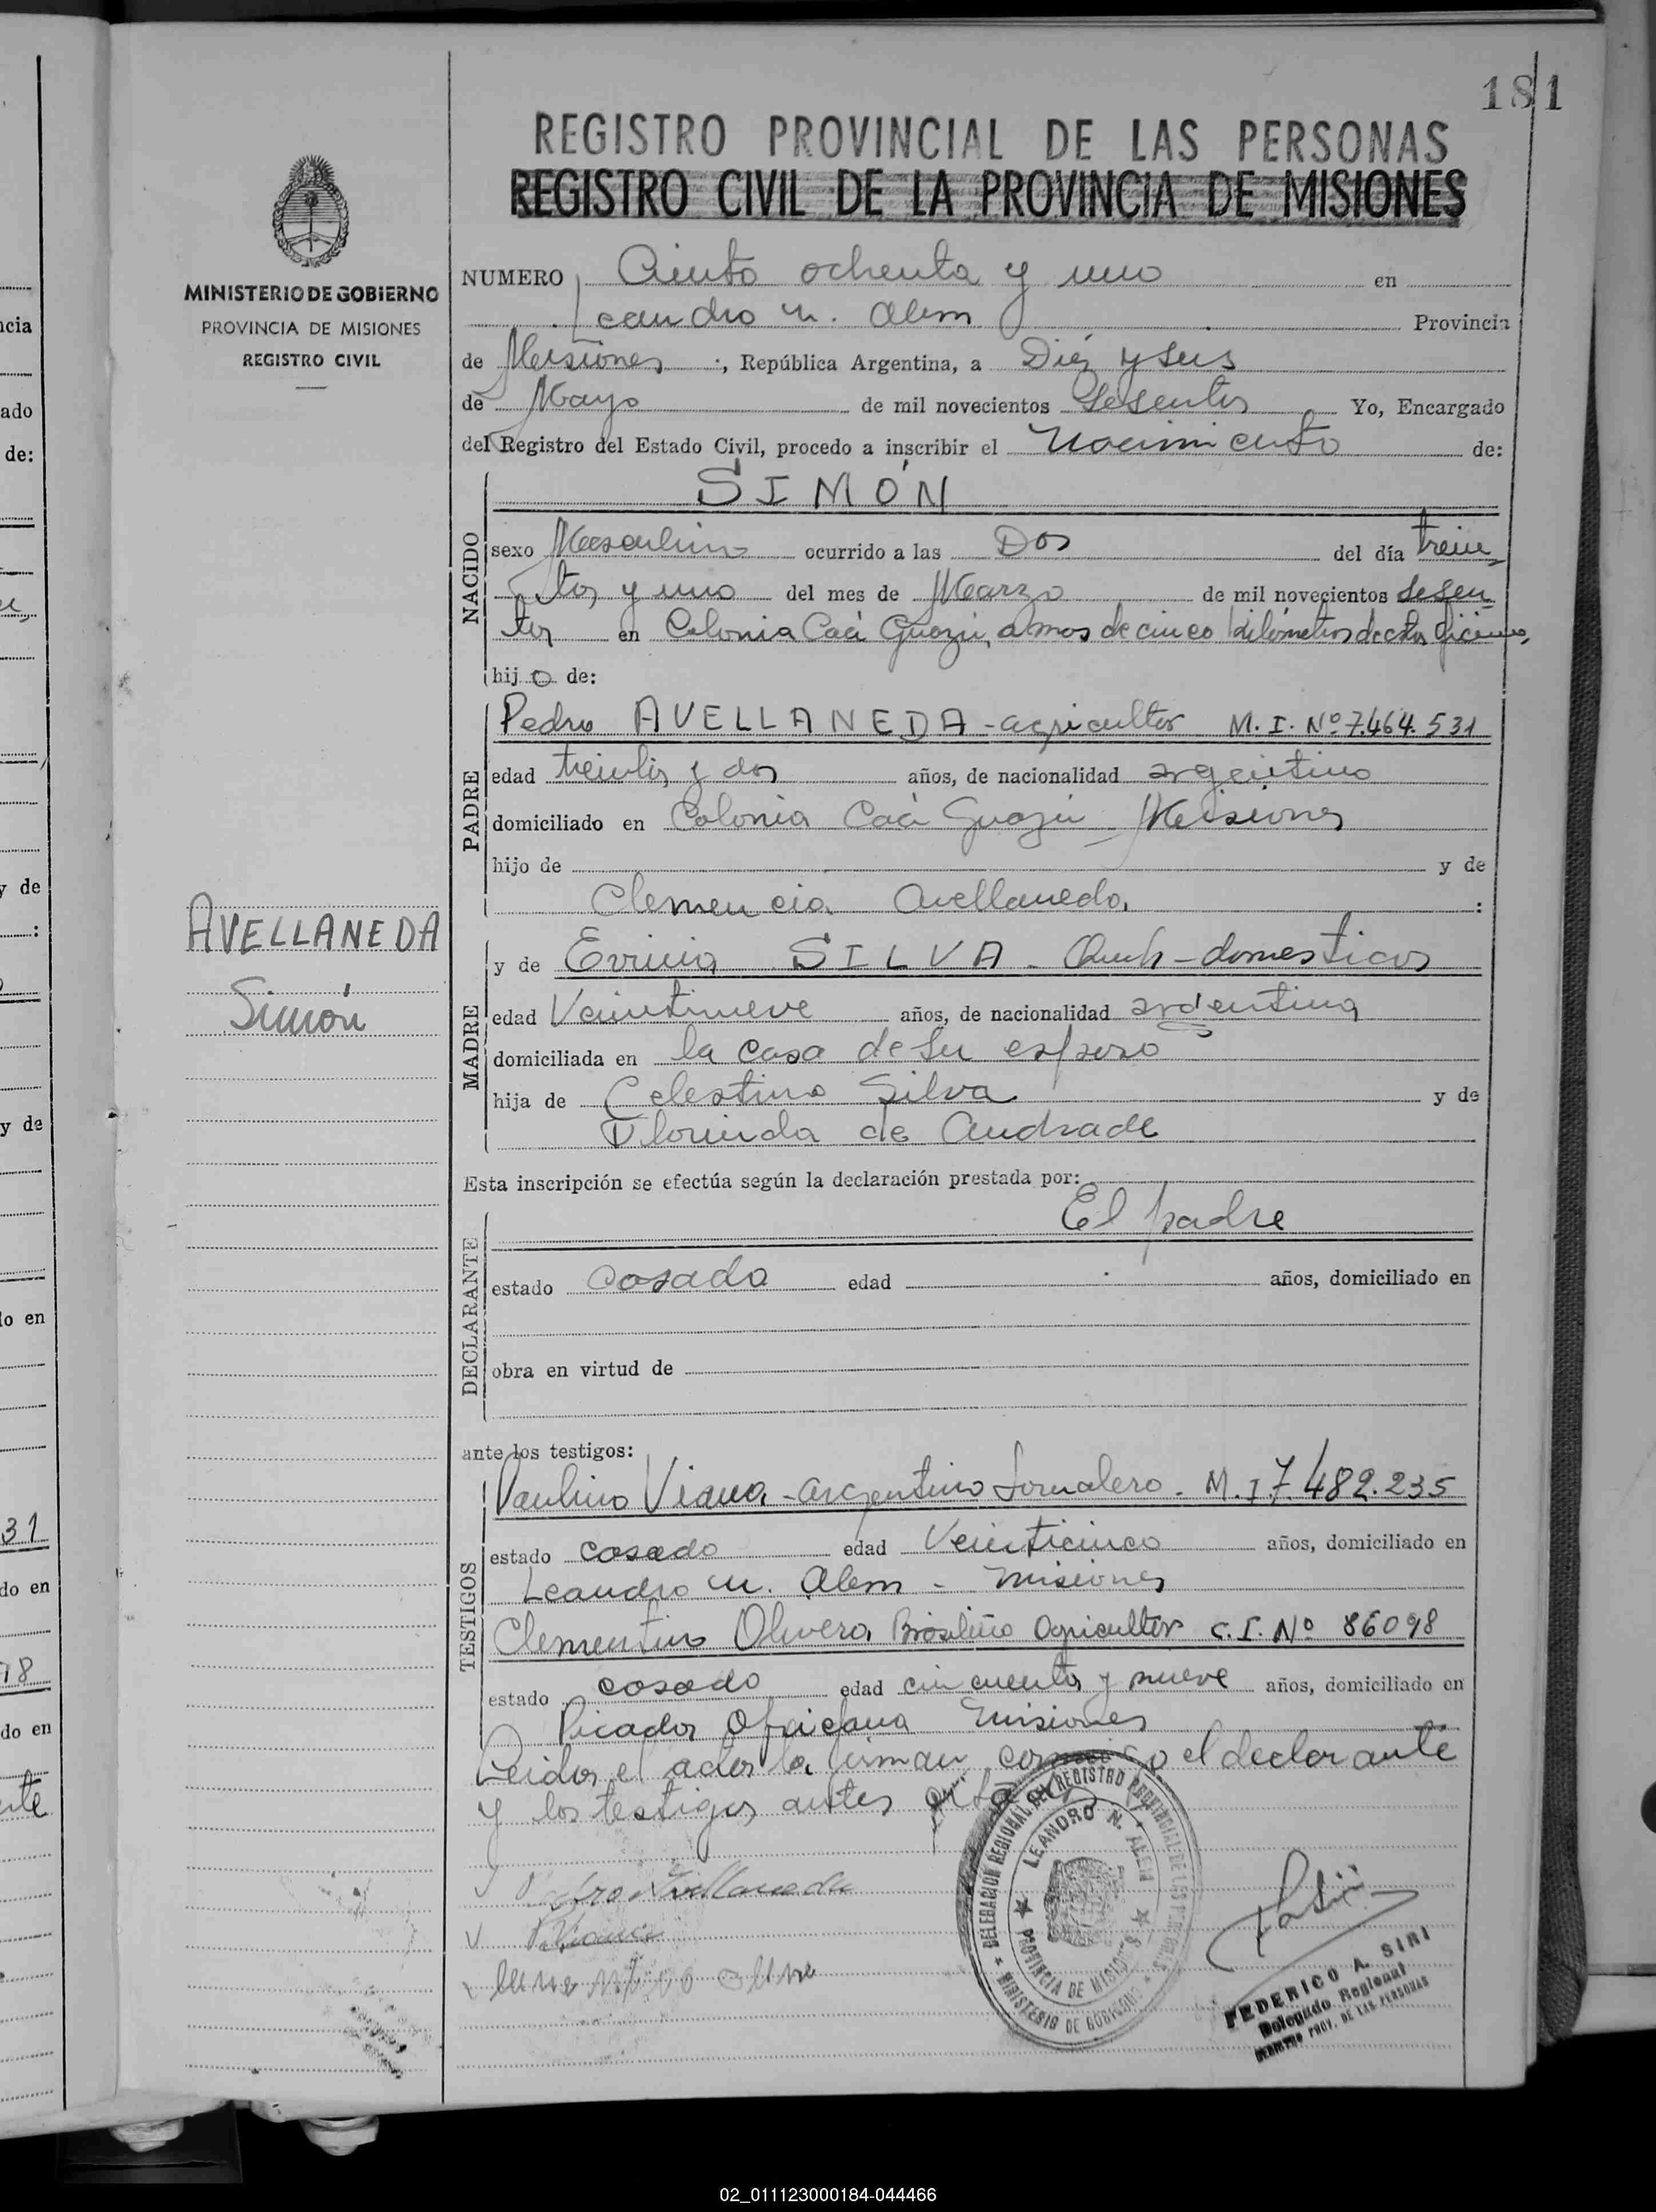 181
REGISTRO PROVINCIAL DE LAS PERSONAS
REGISTRO CIVIL DE LA PROVINCIA DE MISIONES
MINISTERIO DE GOBIERNO
PROVINCIA DE MISIONES
REGISTRO CIVIL
NUMERO Ciento ochenta y uno en
Leandro N. Alem Provincia
de Misiones, República Argentina, a Diez y seis
de Mayo de mil novecientos sesenta Yo, Encargado
del Registro del Estado Civil, procedo a inscribir el Nacimiento de:
SIMÓN
NACIDO
sexo Masculino ocurrido a las Dos del día trein
ta y uno del mes de Marzo de mil novecientos sesen-
ta en Colonia Caá Guazú, a mas de cinco kilómetros de esta oficina,
hijo de:
PADRE
Pedro AVELLANEDA - agricultor M. I. Nº 7.464.531
edad treinta y dos años, de nacionalidad argentino
domiciliado en Colonia Caá Guazú Misiones
hijo de y de
Clemencia Avellaneda :
AVELLANEDA
Simón
MADRE
y de SILVA - domesticos
edad Veintinueve años, de nacionalidad argentina
domiciliada en la casa de su esposo
hija de Celestino Silva y de
Florinda de Andrade
Esta inscripción se efectúa según la declaración prestada por:
El padre
DECLARANTE
estado casado edad años, domiciliado en
obra en virtud de
ante los testigos:
TESTIGOS
Paulino Viana - argentino Jornalero - M. I 7.482.235
estado casado edad Veinticinco años, domiciliado en
Leandro N. Alem - Misiones
Clementino Olivera Brasileño Agricultor C. I. Nº 86098
estado casado edad cincuenta y nueve años, domiciliado en
Picada Misiones
Leida el acta la firman conmigo el declarante
y los testigos antes
Pedro Avellaneda
P. Viana
DELEGACION REGIONAL DEL REGISTRO PROVINCIAL DE LAS PERSONAS
LEANDRO N. ALEM
PROVINCIA DE MISIONES
MINISTERIO DE GOBIERNO
FEDERICO A. SIRI
Delegado Regional
REGISTRO PROV. DE LAS PERSONAS
ncia
ado
de:
y de
:
y de
lo en
31
do en
98
do en
nte
02_011123000184-044466